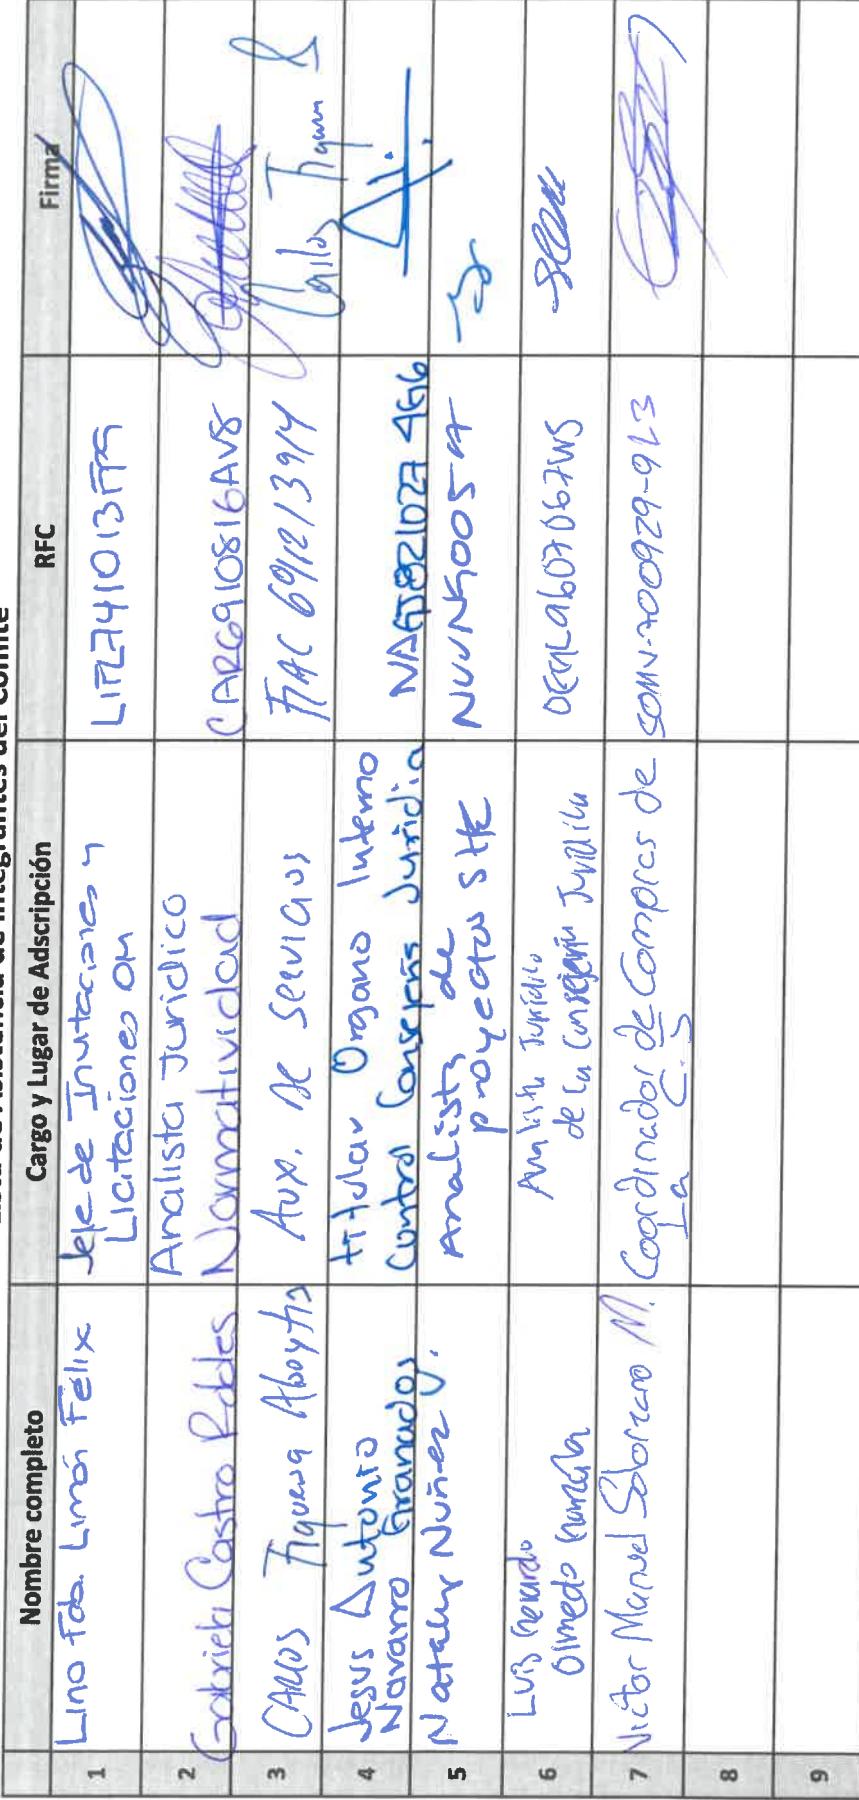 Lista de Asistencia de Integrantes del Comité
Nombre completo Cargo y Lugar de Adscripción RFC Firma
1 Lino Fdo. Limón Félix Jefe de Invitaciones y
Licitaciones OM
2 Gabriela Castro Robles Analista Juridico
Normatividad CARG910816AV8
3 CARLOS Figueroa Aboytis Aux. De Servicios FIAC 691213914
Carlos Figueroa
4 Jesus Antonio
Navarro Granados titular Organo Interno
Control Consejería Juridica NAGJ821027 4G6
5 Nataly Nuñez V. Analista de
proyectos SHE
6 Luis Gerardo
Olmedo Analista Jurídico
de la Consejería Jurídica
7 Victor Manuel Solorzano M. Coordinador de Compras de
La C.J SOMV-700929-9L3
8
9